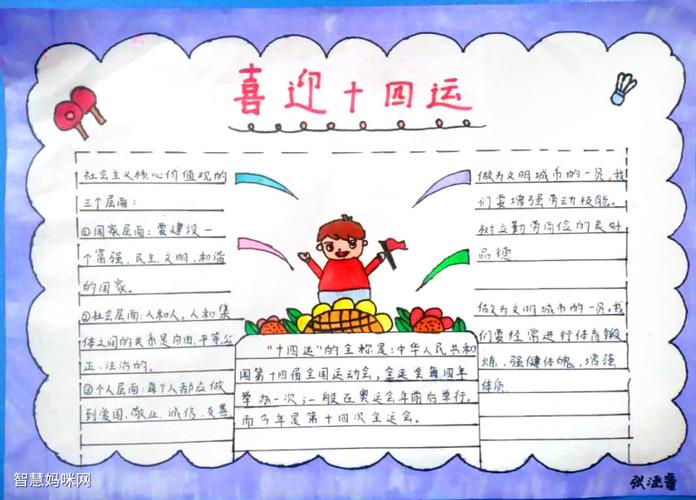 喜迎十四运
社会主义核心价值观的
三个层面：
①国家层面：要建设一
个富强、民主、文明、和谐
的国家。
②社会层面：人和人，人和集
体之间的关系是自由、平等、公
正、法治的。
③个人层面：每个人都应做
到爱国、敬业、诚信、友善
“十四运”的全称是：中华人民共和
国第十四届全国运动会，全运会每四年
举办一次；一般在奥运会年前后举行，
而今年是第十四次全运会。
做为文明城市的一员，我
们要增强劳动技能。
树立勤劳简俭的良好
品德
做为文明城市的一员，我
们要经常进行体育锻
炼，强健体魄，增强
体质
智慧妈咪网